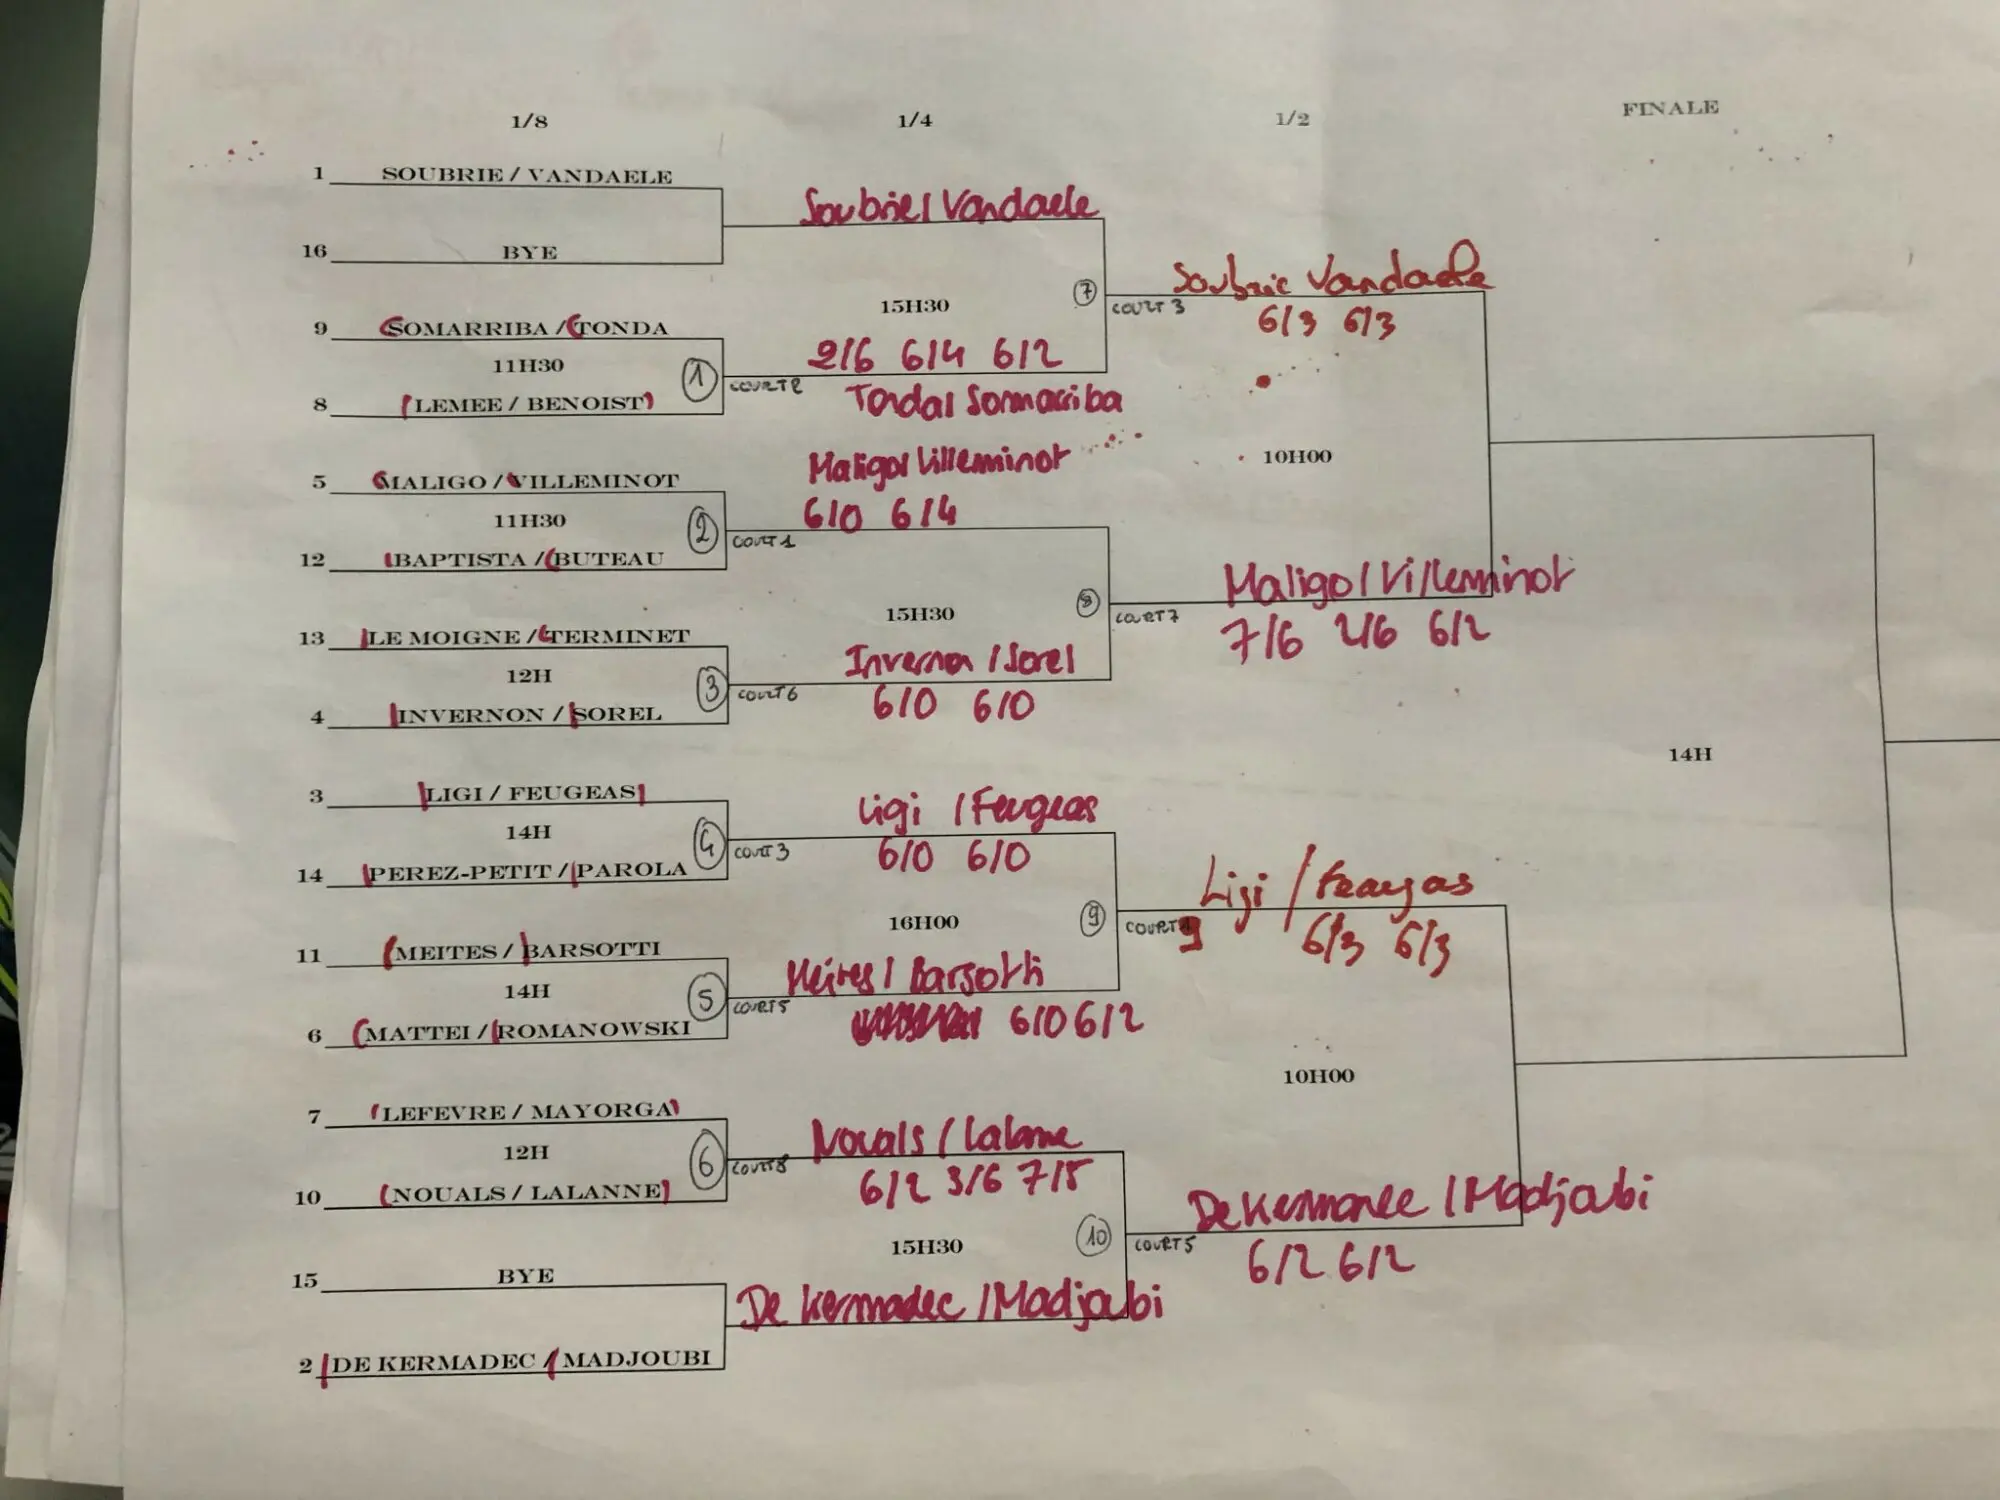 1/8 1/4 1/2 FINALE
1 SOUBRIE / VANDAELE
Soubrie / Vandaele
16 BYE
Soubrie Vandaele
7 COURT 3
6/3 6/3
15H30
9 SOMARRIBA / TONDA
11H30
2/6 6/4 6/2
1 COURT 2
8 LEMEE / BENOIST
Tonda / Sommarriba
10H00
Maligo / Villeminot
5 MALIGO / VILLEMINOT
6/0 6/4
11H30
2 COURT 1
12 BAPTISTA / BUTEAU
Maligo / Villeminot
8 COURT 7
7/6 2/6 6/2
15H30
13 LE MOIGNE / TERMINET
Invernon / Sorel
12H
3 COURT 6
6/0 6/0
4 INVERNON / SOREL
14H
3 LIGI / FEUGEAS
Ligi / Feugeas
14H
4 COURT 3
6/0 6/0
14 PEREZ-PETIT / PAROLA
Ligi / Feaugas
9 COURT 9
6/3 6/3
16H00
11 MEITES / BARSOTTI
Meites / Barsotti
14H
5 COURT 5
6/0 6/2
6 MATTEI / ROMANOWSKI
10H00
7 LEFEVRE / MAYORGA
Nouals / Lalanne
12H
6 COURT 8
6/2 3/6 7/5
10 NOUALS / LALANNE
De Kermadec / Madjoubi
10 COURT 5
6/2 6/2
15H30
15 BYE
De Kermadec / Madjoubi
2 DE KERMADEC / MADJOUBI